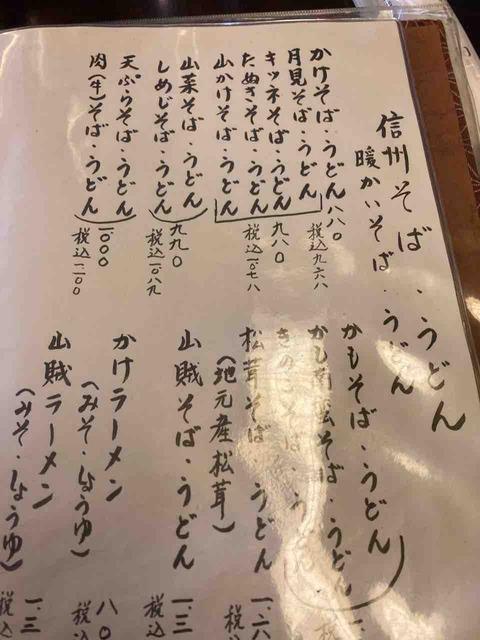 信州そば・うどん
暖かいそば・うどん
かけそば・うどん八八〇
税込九六八
月見そば・うどん
キツネそば・うどん
たぬきそば・うどん
山かけそば・うどん
九八〇
税込一〇七八
山菜そば・うどん
しめじそば・うどん
九九〇
税込一〇八九
天ぷらそば・うどん
肉(牛)そば・うどん
一〇〇〇
税込一一〇〇
かもそば・うどん
かも南蛮そば・うどん
きのこそば・う
松茸そば うどん
(地元産松茸)
山賊そば・うどん
一、三
税込
かけラーメン
(みそ・しょうゆ)
八〇
税込
山賊ラーメン
(みそ・しょうゆ)
一、三
税込